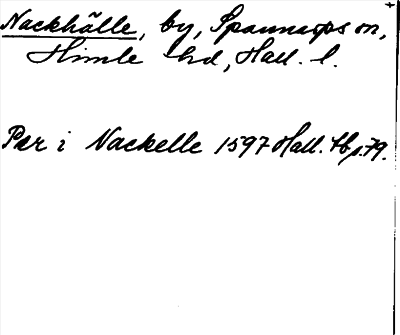 Nackhälle, by, Spannarps sn,
Himle hd, Hall. l.
Per i Nackelle 1597 Hall. tb s. 79.